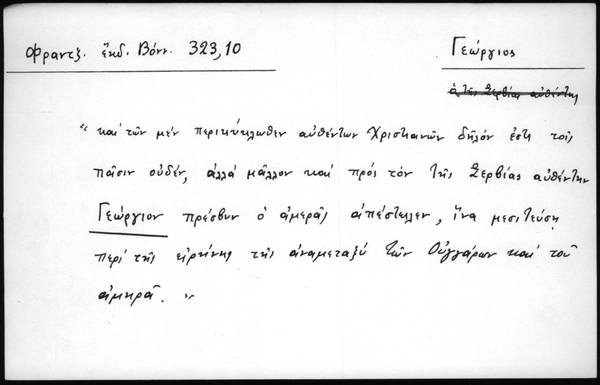 Φραντζ. ἔκδ. Βόνν. 323,10
Γεώργιος
ὁ τῆς Σερβίας αὐθέντης
" καὶ τῶν μέν περικύκλωθεν αὐθέντων Χριστιανῶν δῆλόν ἐστι τοῖς
πᾶσιν οὐδέν, ἀλλά μᾶλλον καὶ πρός τόν τῆς Σερβίας αὐθέντην
Γεώργιον πρέσβυν ὁ ἀμερᾶς ἀπέστειλεν, ἵνα μεσιτεύσῃ
περί τῆς εἰρήνης τῆς ἀναμεταξύ τῶν Οὐγγάρων καὶ τοῦ
ἀμηρᾶ. "